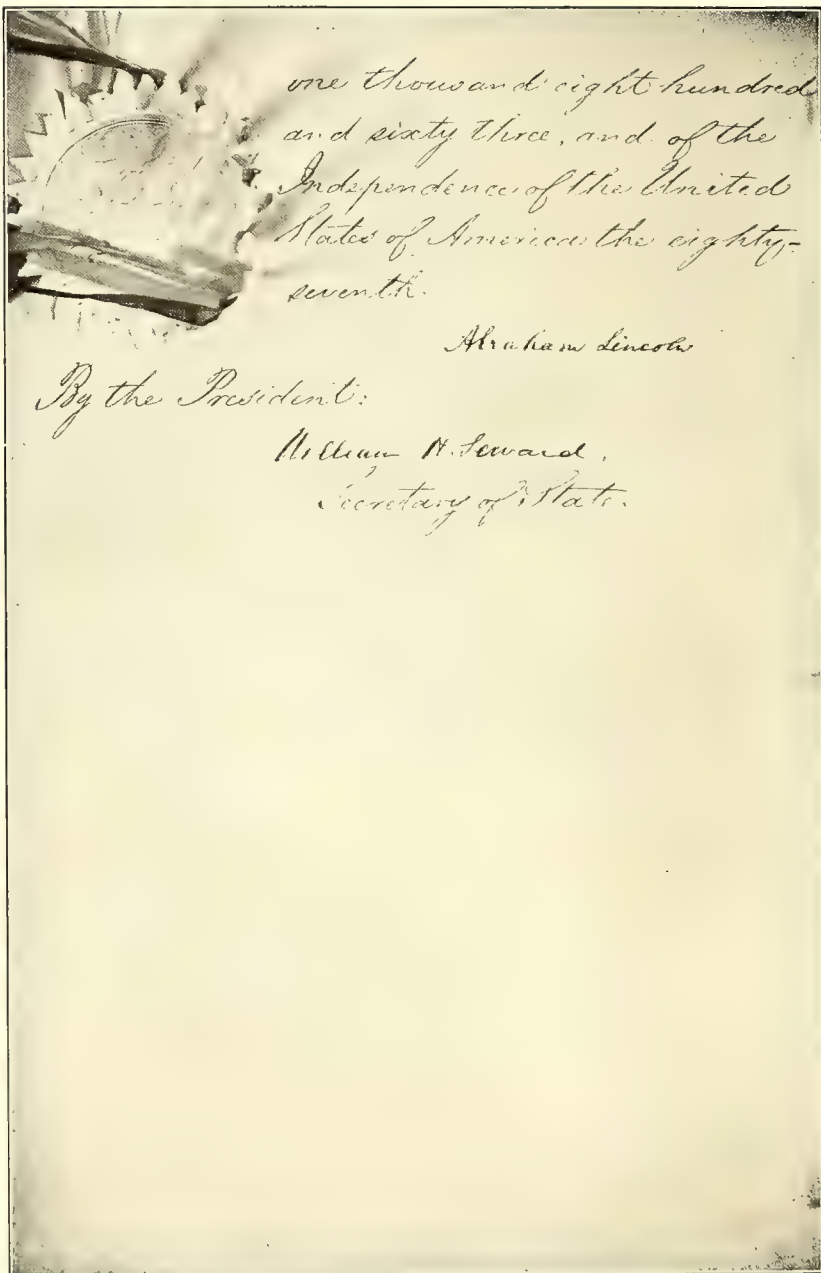 one thousand eight hundred
and sixty three, and of the
Independence of the United
States of America the eighty-
seventh.
Abraham Lincoln
By the President:
William H. Seward,
Secretary of State.